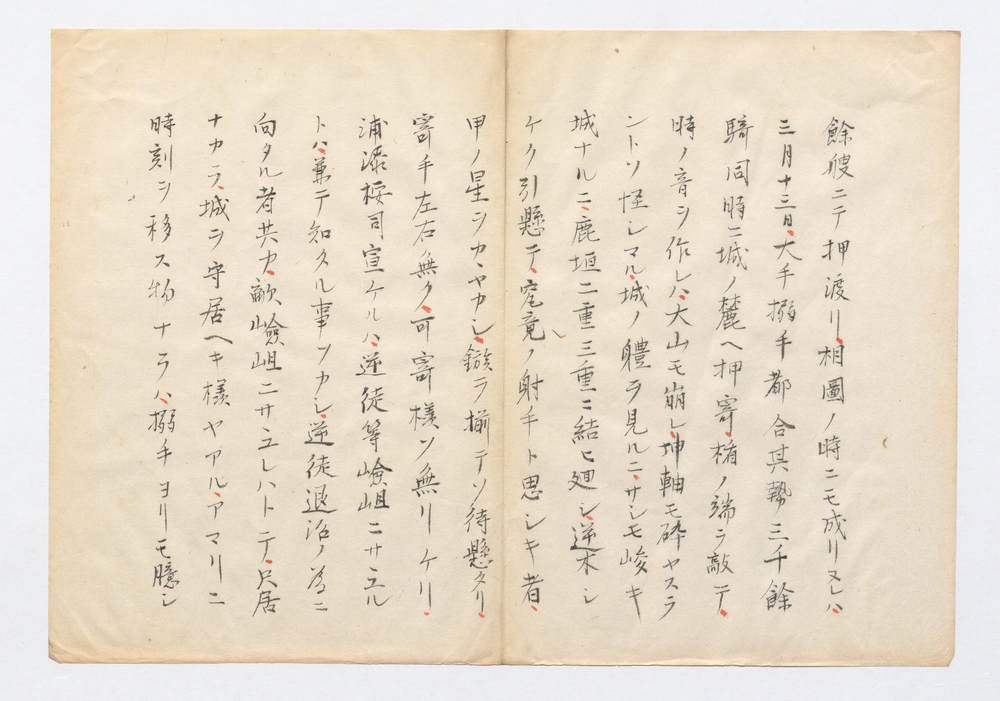 餘艘ニテ押渡リ、相圖ノ時ニモ成リヌレハ、
三月十三日、大手搦手都合其勢三千餘
騎同時ニ城ノ麓ヘ押寄、楯ノ端ヲ敲テ、
時ノ音ヲ作レハ、大山モ崩レ、坤軸モ砕ヤスラ
ントソ怪シマル、城ノ軆ヲ見ルニ、サシモ峻キ
城ナルニ、鹿垣二重三重ニ結ヒ廻シ、逆木シ
ケク引懸テ、究竟ノ射手ト思シキ者、
甲ノ星ヲカヽヤカシ、鏃ヲ揃テソ待懸タリ、
寄手左右無ク、可寄様ソ無リケリ、
浦添按司宣ケルハ、逆徒等嶮岨ニサヽユル
トハ、兼テ知タル事ソカシ、逆徒退治ノ為ニ
向タル者共カ、敵嶮岨ニサヽユレハトテ、只居
ナカラ、城ヲ守居ヘキ様ヤアル、アマリニ
時刻ヲ移ス物ナラハ、搦手ヨリモ臆シ